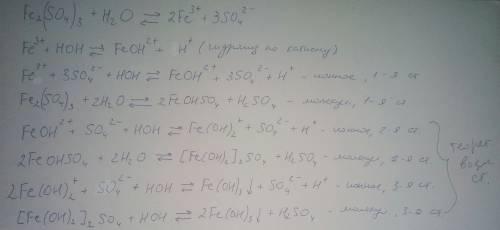 Fe₂(SO₄)₃ + H₂O ⇄ 2Fe³⁺ + 3SO₄²⁻
Fe³⁺ + HOH ⇄ FeOH²⁺ + H⁺ (гидролиз по катиону)
Fe³⁺ + 3SO₄²⁻ + HOH ⇄ FeOH²⁺ + 3SO₄²⁻ + H⁺ - ионное, 1-я ст
Fe₂(SO₄)₃ + 2H₂O ⇄ 2FeOHSO₄ + H₂SO₄ - молекул, 1-я ст
FeOH²⁺ + SO₄²⁻ + HOH ⇄ Fe(OH)₂⁺ + SO₄²⁻ + H⁺ - ионное, 2-я ст.
2FeOHSO₄ + 2H₂O ⇄ [Fe(OH)₂]₂SO₄ + H₂SO₄ - молекул, 2-я ст.
2Fe(OH)₂⁺ + SO₄²⁻ + HOH ⇄ Fe(OH)₃↓ + SO₄²⁻ + H⁺ - ионное, 3-я ст.
[Fe(OH)₂]₂SO₄ + HOH ⇄ 2Fe(OH)₃↓ + H₂SO₄ - молекул, 3-я ст.
теорет
ст.